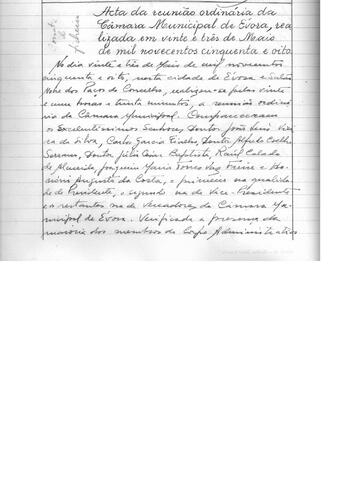 Acta da reunião ordinária da
Câmara Municipal de Évora, rea
lizada em vinte e três de Maio
de mil novecentos cinquenta e oito.
No dia vinte e três de Maio de mil novecentos
cinquenta e oito, nesta cidade de Évora e Salão
Nobre dos Paços do Concelho, realizou-se pelas vinte
e uma horas e trinta minutos, a reunião ordiná
ria da Câmara Municipal. Compareceram
os Excelentíssimos Senhores, Doutor João Luís Viei
ra da Silva, Carlos Garcia Fialho, Doutor Alfredo Coelho
Serrano, Doutor Júlio César Baptista, Raúl Calado
de Almeida, Joaquim Maria Torres Vaz Freire e
Augusto da Costa, o primeiro na qualida
de de Presidente, o segundo na de Vice-Presidente
e os restantes na de Vereadores da Câmara Mu
nicipal de Évora. Verificada a presença da
maioria dos membros do Corpo Administrativo